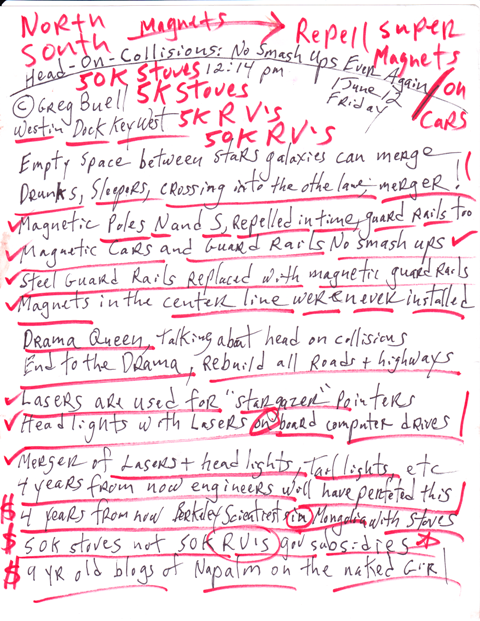 North Magnets → Repell Super
South Magnets
Head-On-Collisions: No Smash Ups Ever Again / on
50K Stoves 12:14 pm 1 June 12 CARS
© Greg Buell 5K Stoves Friday
Westin Dock Key West 5K RV's
50K RV's
Empty Space between stars galaxies can merge
Drunks, Sleepers, crossing into the othe lane, merger!
✓ Magnetic Poles N and S, Repelled in time, guard Rails too
✓ Magnetic Cars and Guard Rails No smash ups ✓
✓ Steel Guard Rails Replaced with magnetic guard Rails
✓ Magnets in the center line were never installed
Drama Queen, talking about head on collisions
End to the Drama, Rebuild all Roads + highways
✓ Lasers are used for "stargazer" pointers
✓ Headlights with Lasers on board computer drives
✓ Merger of Lasers + head lights, Tail lights, etc
4 years from now engineers will have perfeted this
$ 4 years from now Berkeley Scientists in Mongolia with stoves
$ 50K stoves not 50K RV's gov subsidies
$ 9 yr old blogs of Napalm on the naked Girl